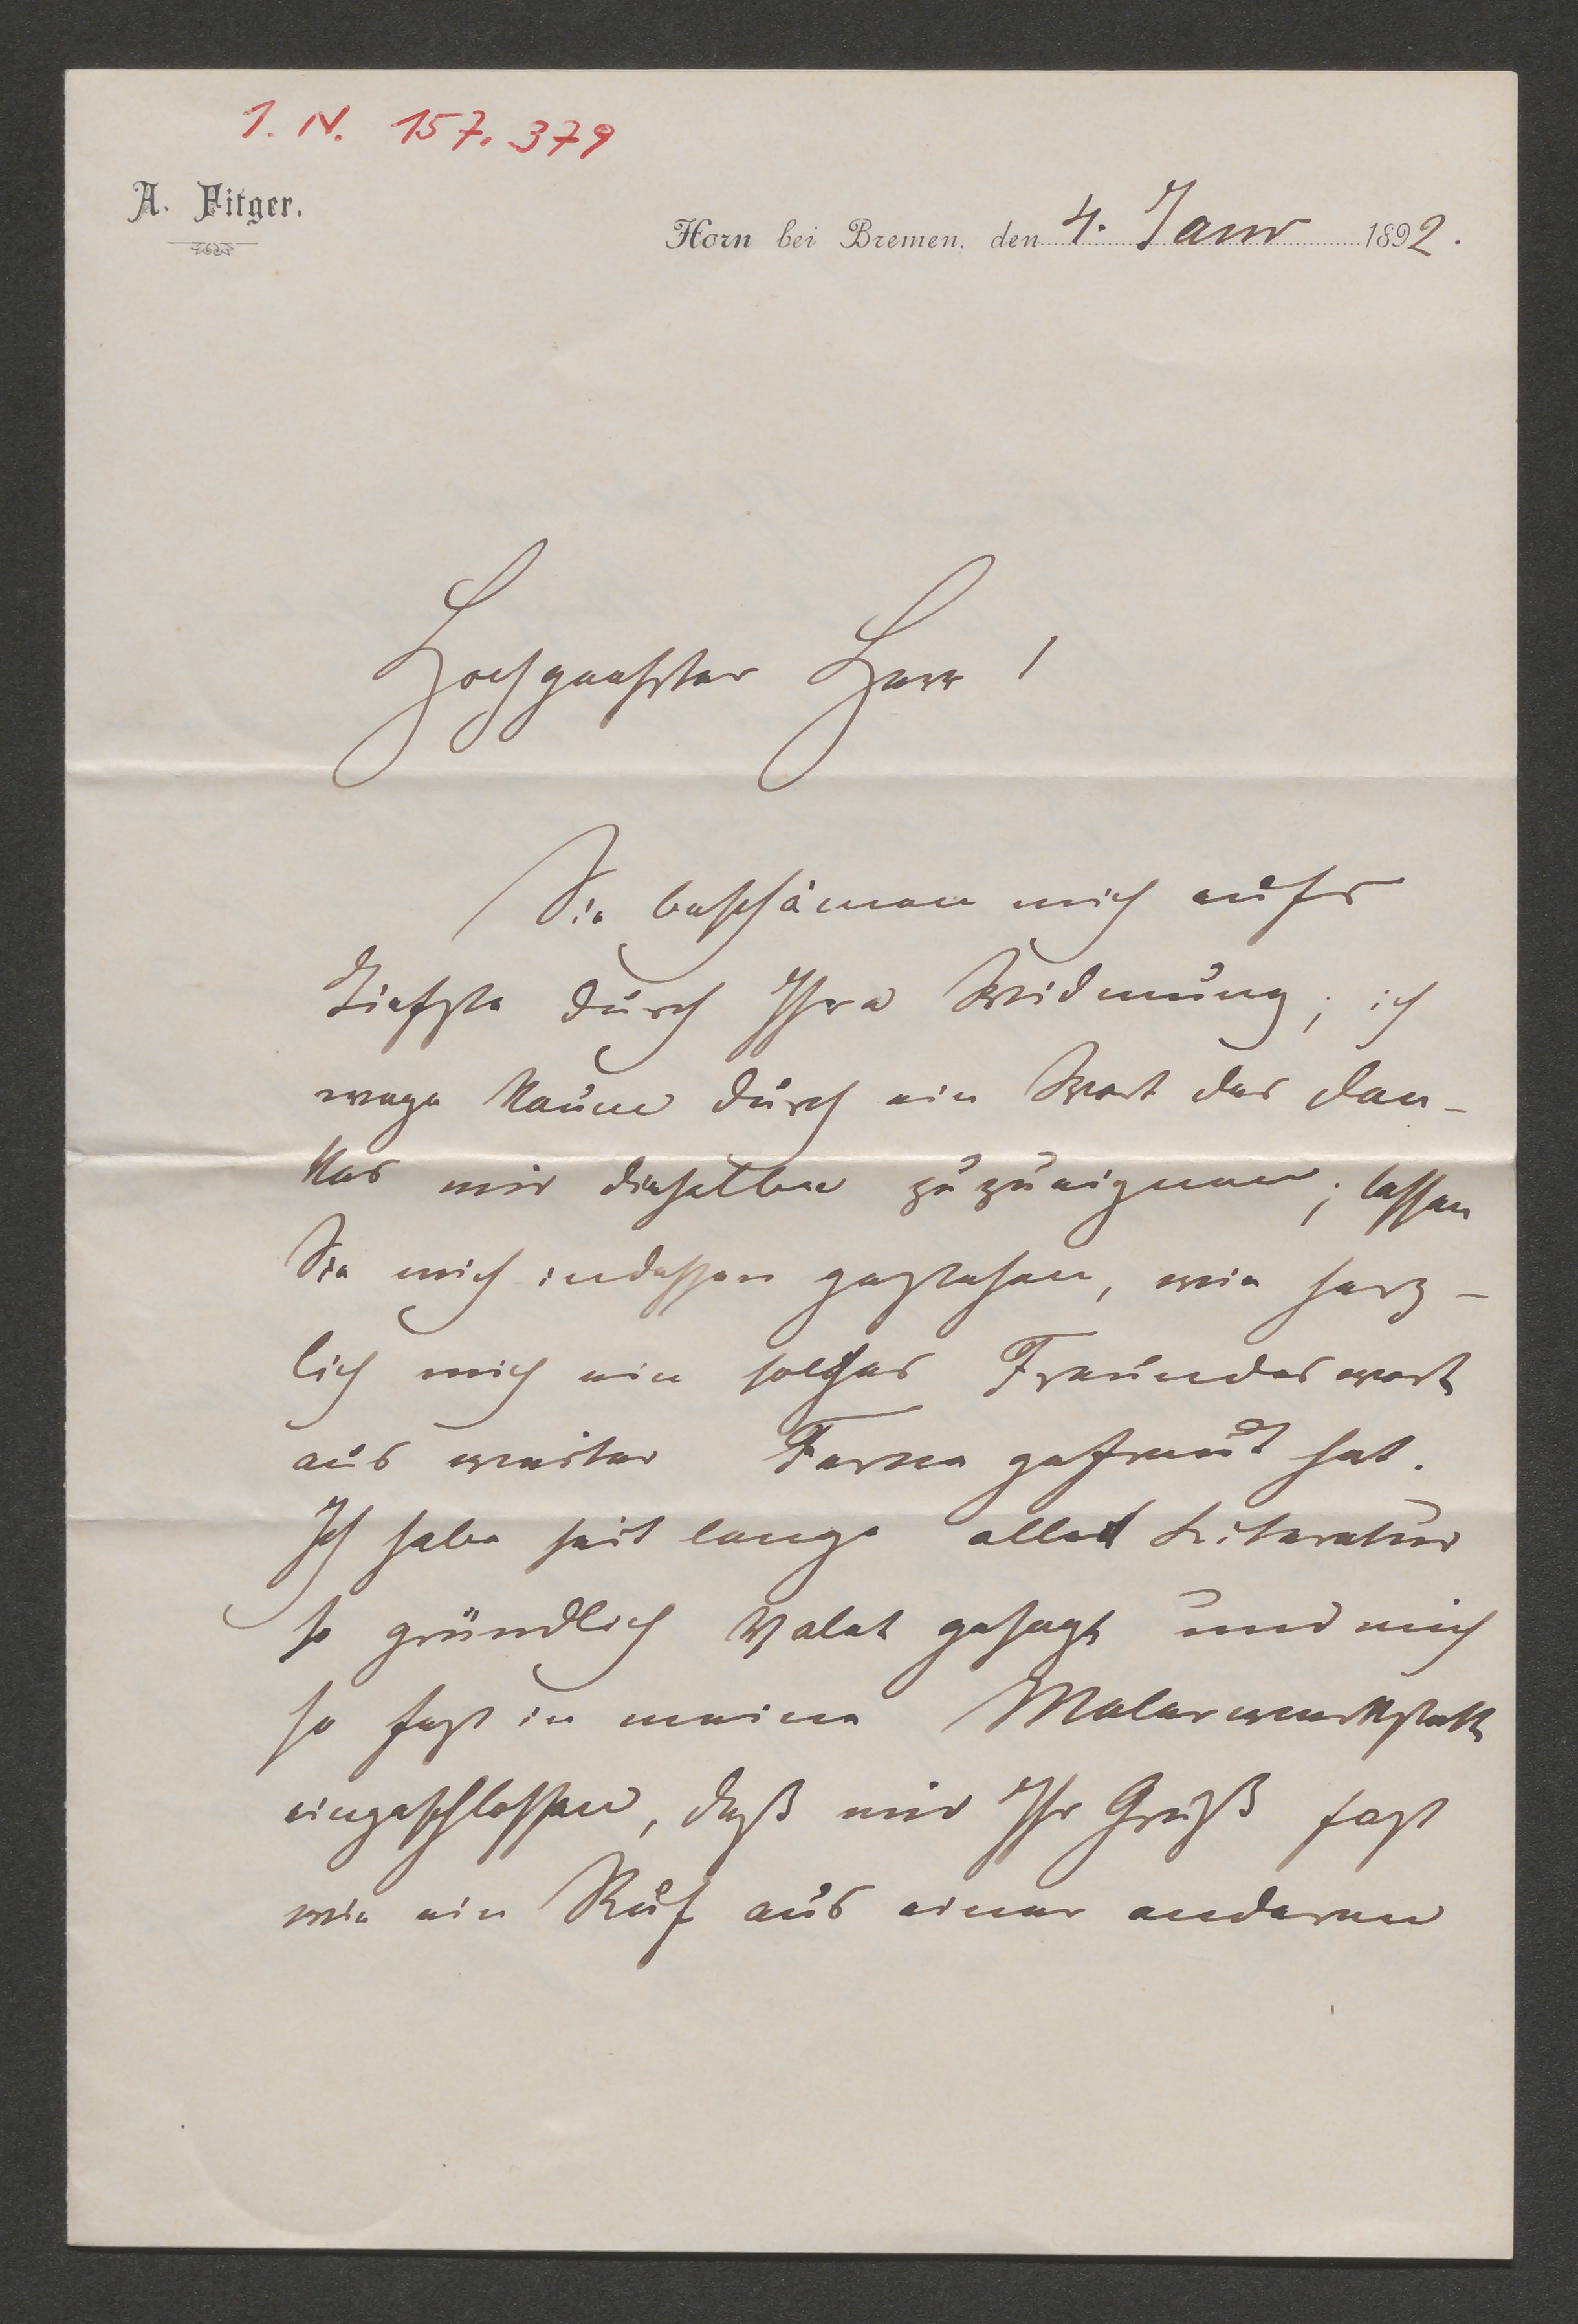 I. N. 157.379
A. Fitger.
Horn bei Bremen, den 4. Janr 1892.
Hochgeehrter Herr!
Sie beschämen mich aufs
Tiefste durch Ihre Widmung; ich
wage kaum durch ein Wort des Dan-
kes mir dieselbe zuzueignen; lassen
Sie mich indessen gestehen, wie herz-
lich mich ein solches Freundeswort
aus weiter Ferne gefreut hat.
Ich habe seit lange aller Literatur
so gründlich Valet gesagt und mich
so fest in meine Malerwerkstatt
eingeschlossen, daß mir Ihr Gruß fast
wie ein Ruf aus einer anderen